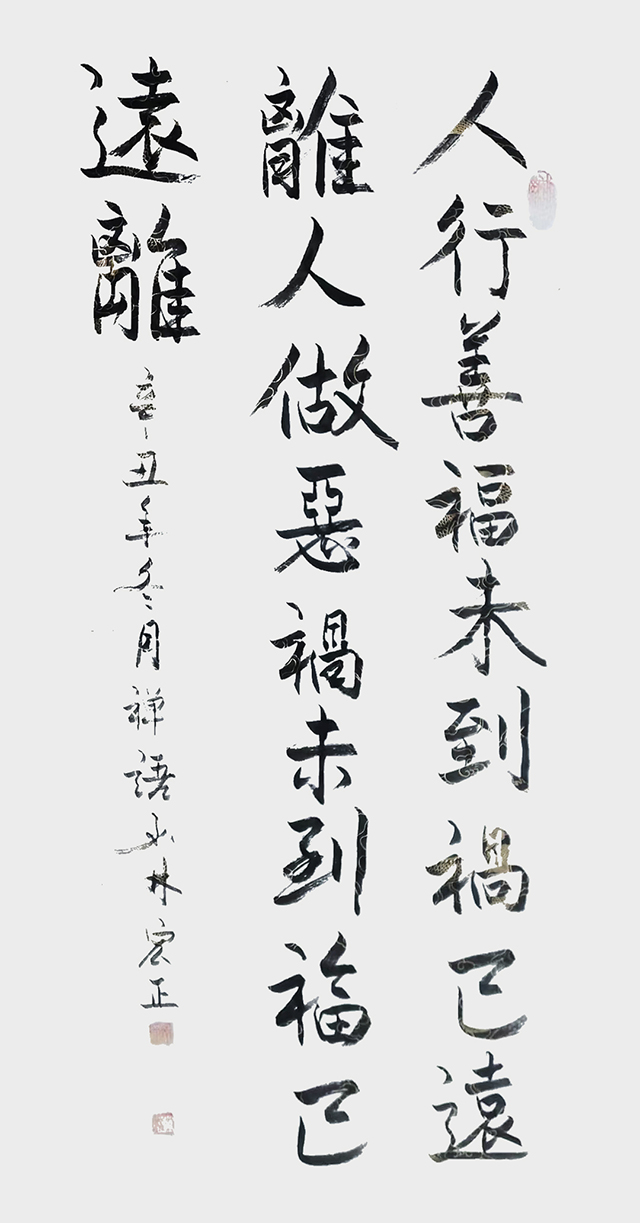 人行善福未到禍已遠
離人做惡禍未到福已
遠離
辛丑年冬月禅語永林宏正